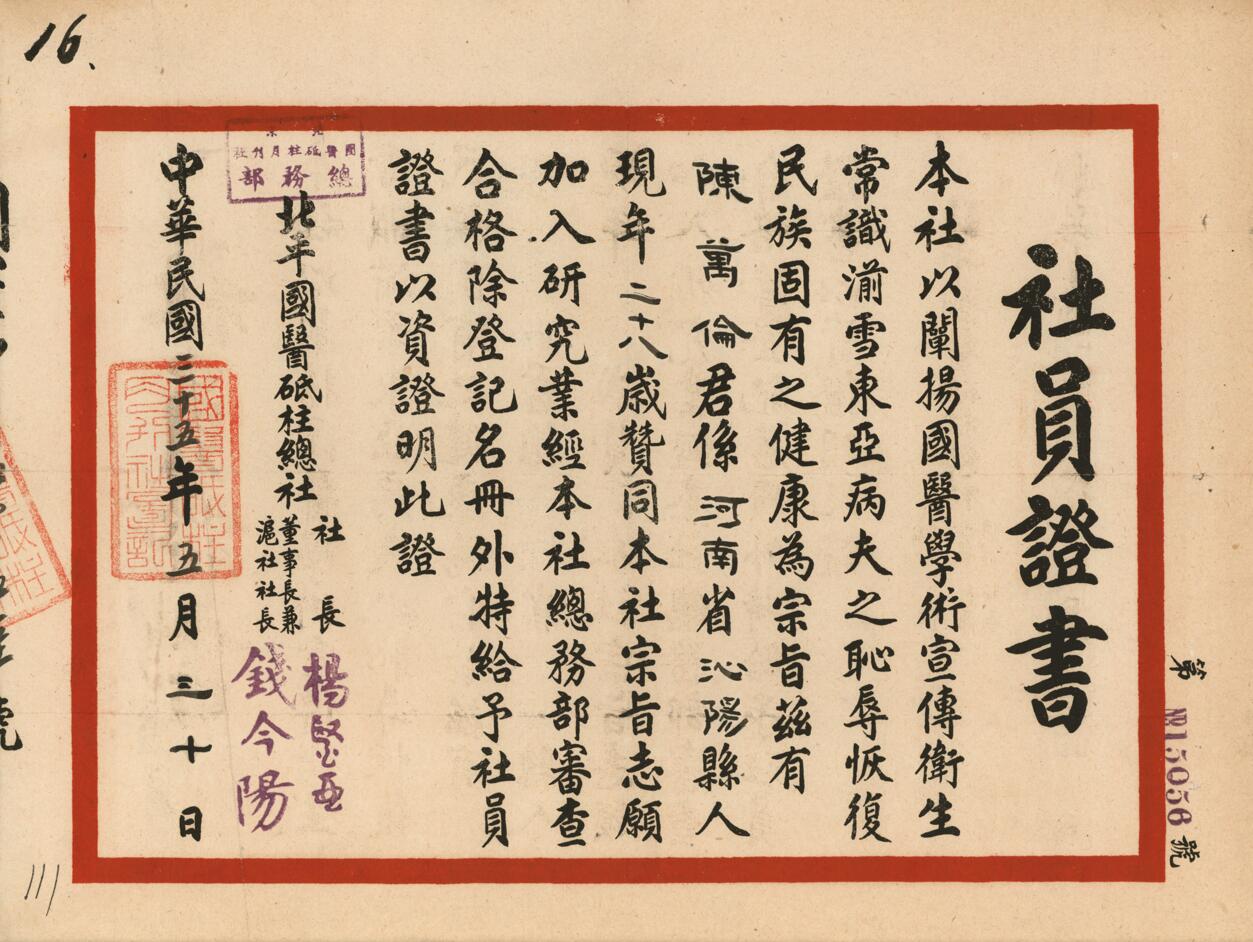 16.
社員證書
本社以闡揚國醫學術宣傳衛生
常識湔雪東亞病夫之恥辱恢復
民族固有之健康為宗旨茲有
陳萬倫君係河南省沁陽縣人
現年二十八歲贊同本社宗旨志願
加入研究業經本社總務部審查
合格除登記名冊外特給予社員
證書以資證明此證
國醫砥柱月刊社
總務部
北平國醫砥柱總社
社長 楊醫亞
董事長兼滬社社長 錢今陽
中華民國二十五年五月三十日
第 №15056 號
號